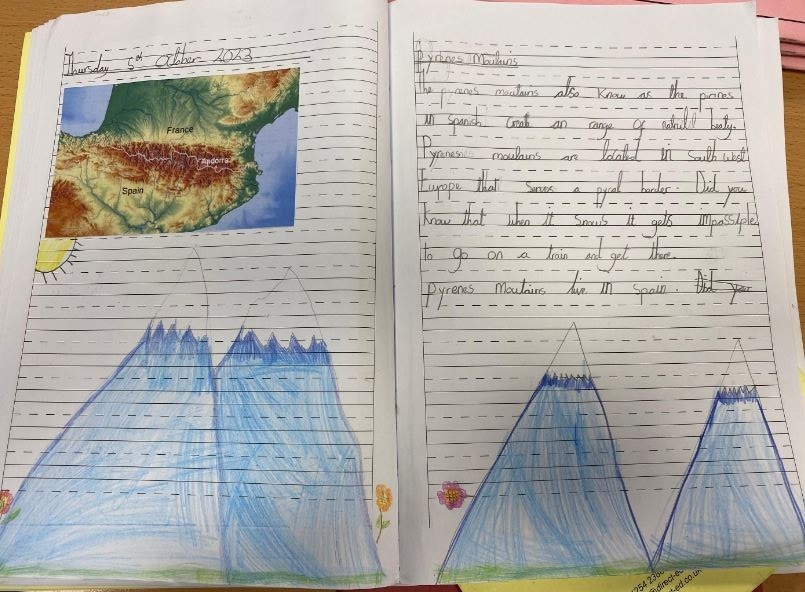 Thursday 5th October 2023
France
Andorra
Spain
Pyrenes Moutains
the pyranes moutains also know as the pirines
in spanish creat an range of natruil beaty.
Pyrenese moutains are located in South West
Europe that serves a pycal border. Did you
know that when it snows it gets impossiple
to go on a train and get there.
pyrenes Moutains live in Spain. Did your
4254 238
@direct-e
t-ed.co.uk